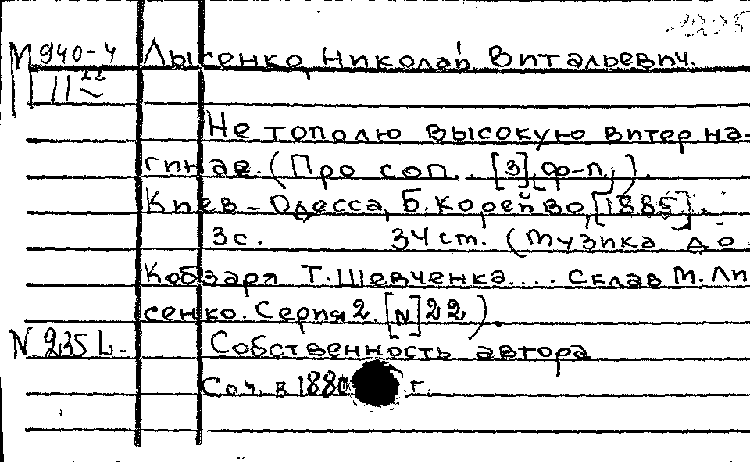 М 940-4 Лысенко, Николай Витальевич.
II 22
Не тополю высокую витер на-
гинае. (Про соп. . [з] ф-п.).
Киев-Одесса, Б. Корейво, [1885].
3 с. 34 ст. (Музика до
Кобзаря Т. Шевченка.... склав М. Ли
сенко. Серия 2. [N] 22).
N 235 L. Собственность автора
Соч. в 1880 г.